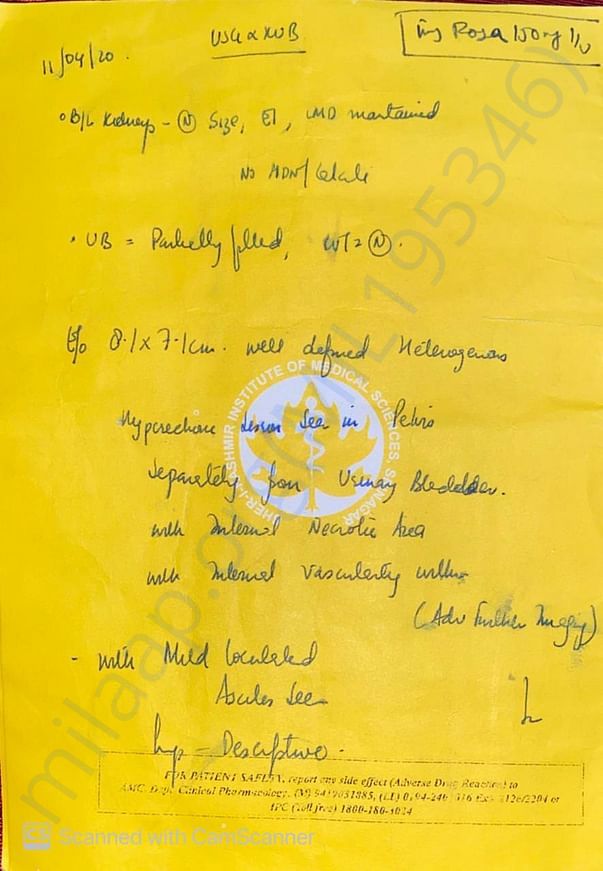 11/04/20.
USG & KUB
Inj Rosa 150mg I/V
• B/L Kidneys - (N) Size, ET, CMD maintained
No HDN/Calculi
• UB = Partially filled, WT = (N).
E/o 8.1 x 7.1cm. well defined Heterogenous
Hyperechoic Lesion Seen in Pelvis
Separately from Urinary Bladder.
with Internal Necrotic Area
with Internal Vascularity within
(Adv Further Imaging)
- with Mild loculated
Ascites Seen
Imp = Descriptive.
SHER-I-KASHMIR INSTITUTE OF MEDICAL SCIENCES, SRINAGAR
FOR PATIENT SAFETY, report any side effect (Adverse Drug Reaction) to
AMC, Dept. Clinical Pharmacology, (M) 9419031885, (LL) 0194-240 Ext. 2126/2204 or
IPC (Toll free) 1800-180-3024
CS Scanned with CamScanner
milaap.org (MIL195346)